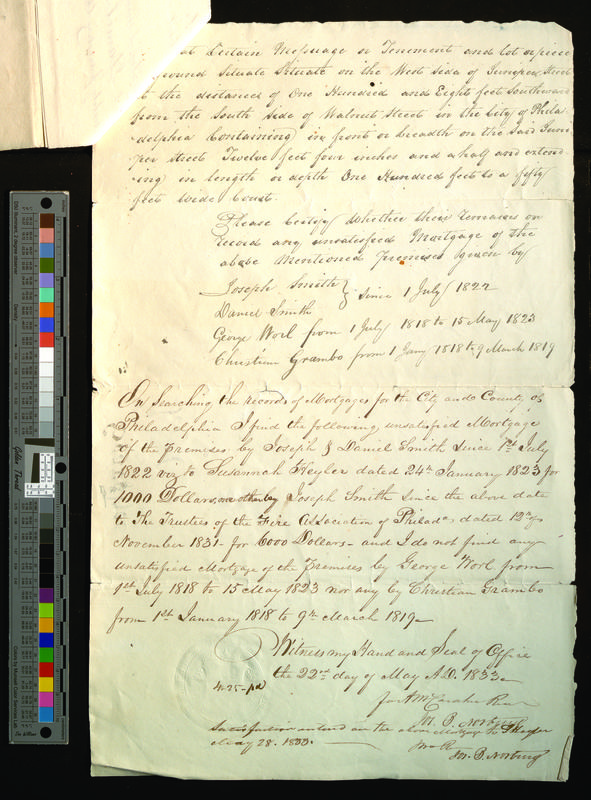 at Certain Messuage or Tenement and lot or piece
ground Situate Situate on the West Side of Juniper Street
at the distance of One Hundred and Eight feet Southward
from the South Side of Walnut Street in the City of Phila-
delphia Containing in front or breadth on the said Juni-
per street Twelve feet four inches and a half and extend-
ing in length or depth One Hundred feet to a fifty
feet wide Court.
Please Certify whether their remains on
record any unsatisfied Mortgage of the
above Mentioned Premises given by
Joseph Smith } since 1 July 1822
Daniel Smith
George Worl from 1 July 1818 to 15 May 1823
Christian Grambo from 1 Jany 1818 to 9 March 1819
On Searching the records of Mortgages for the City and County of
Philadelphia I find the following unsatisfied Mortgage
of the Premises by Joseph & Daniel Smith since 1st July
1822 viz to Susannah Keyler dated 24th January 1823 for
1000 Dollars, one other by Joseph Smith since the above date
to The Trustees of the Fire Association of Philada dated 12th
November 1831 for 6000 Dollars - and I do not find any
unsatisfied Mortgage of the Premises by George Worl from
1st July 1818 to 15 May 1823 nor any by Christian Grambo
from 1st January 1818 to 9th March 1819
Witness my Hand and Seal of Office
the 22nd day of May A.D. 1833
4.25 pd
for
Satisfaction entered on the above Mortgage to Keyler
May 28. 1833.